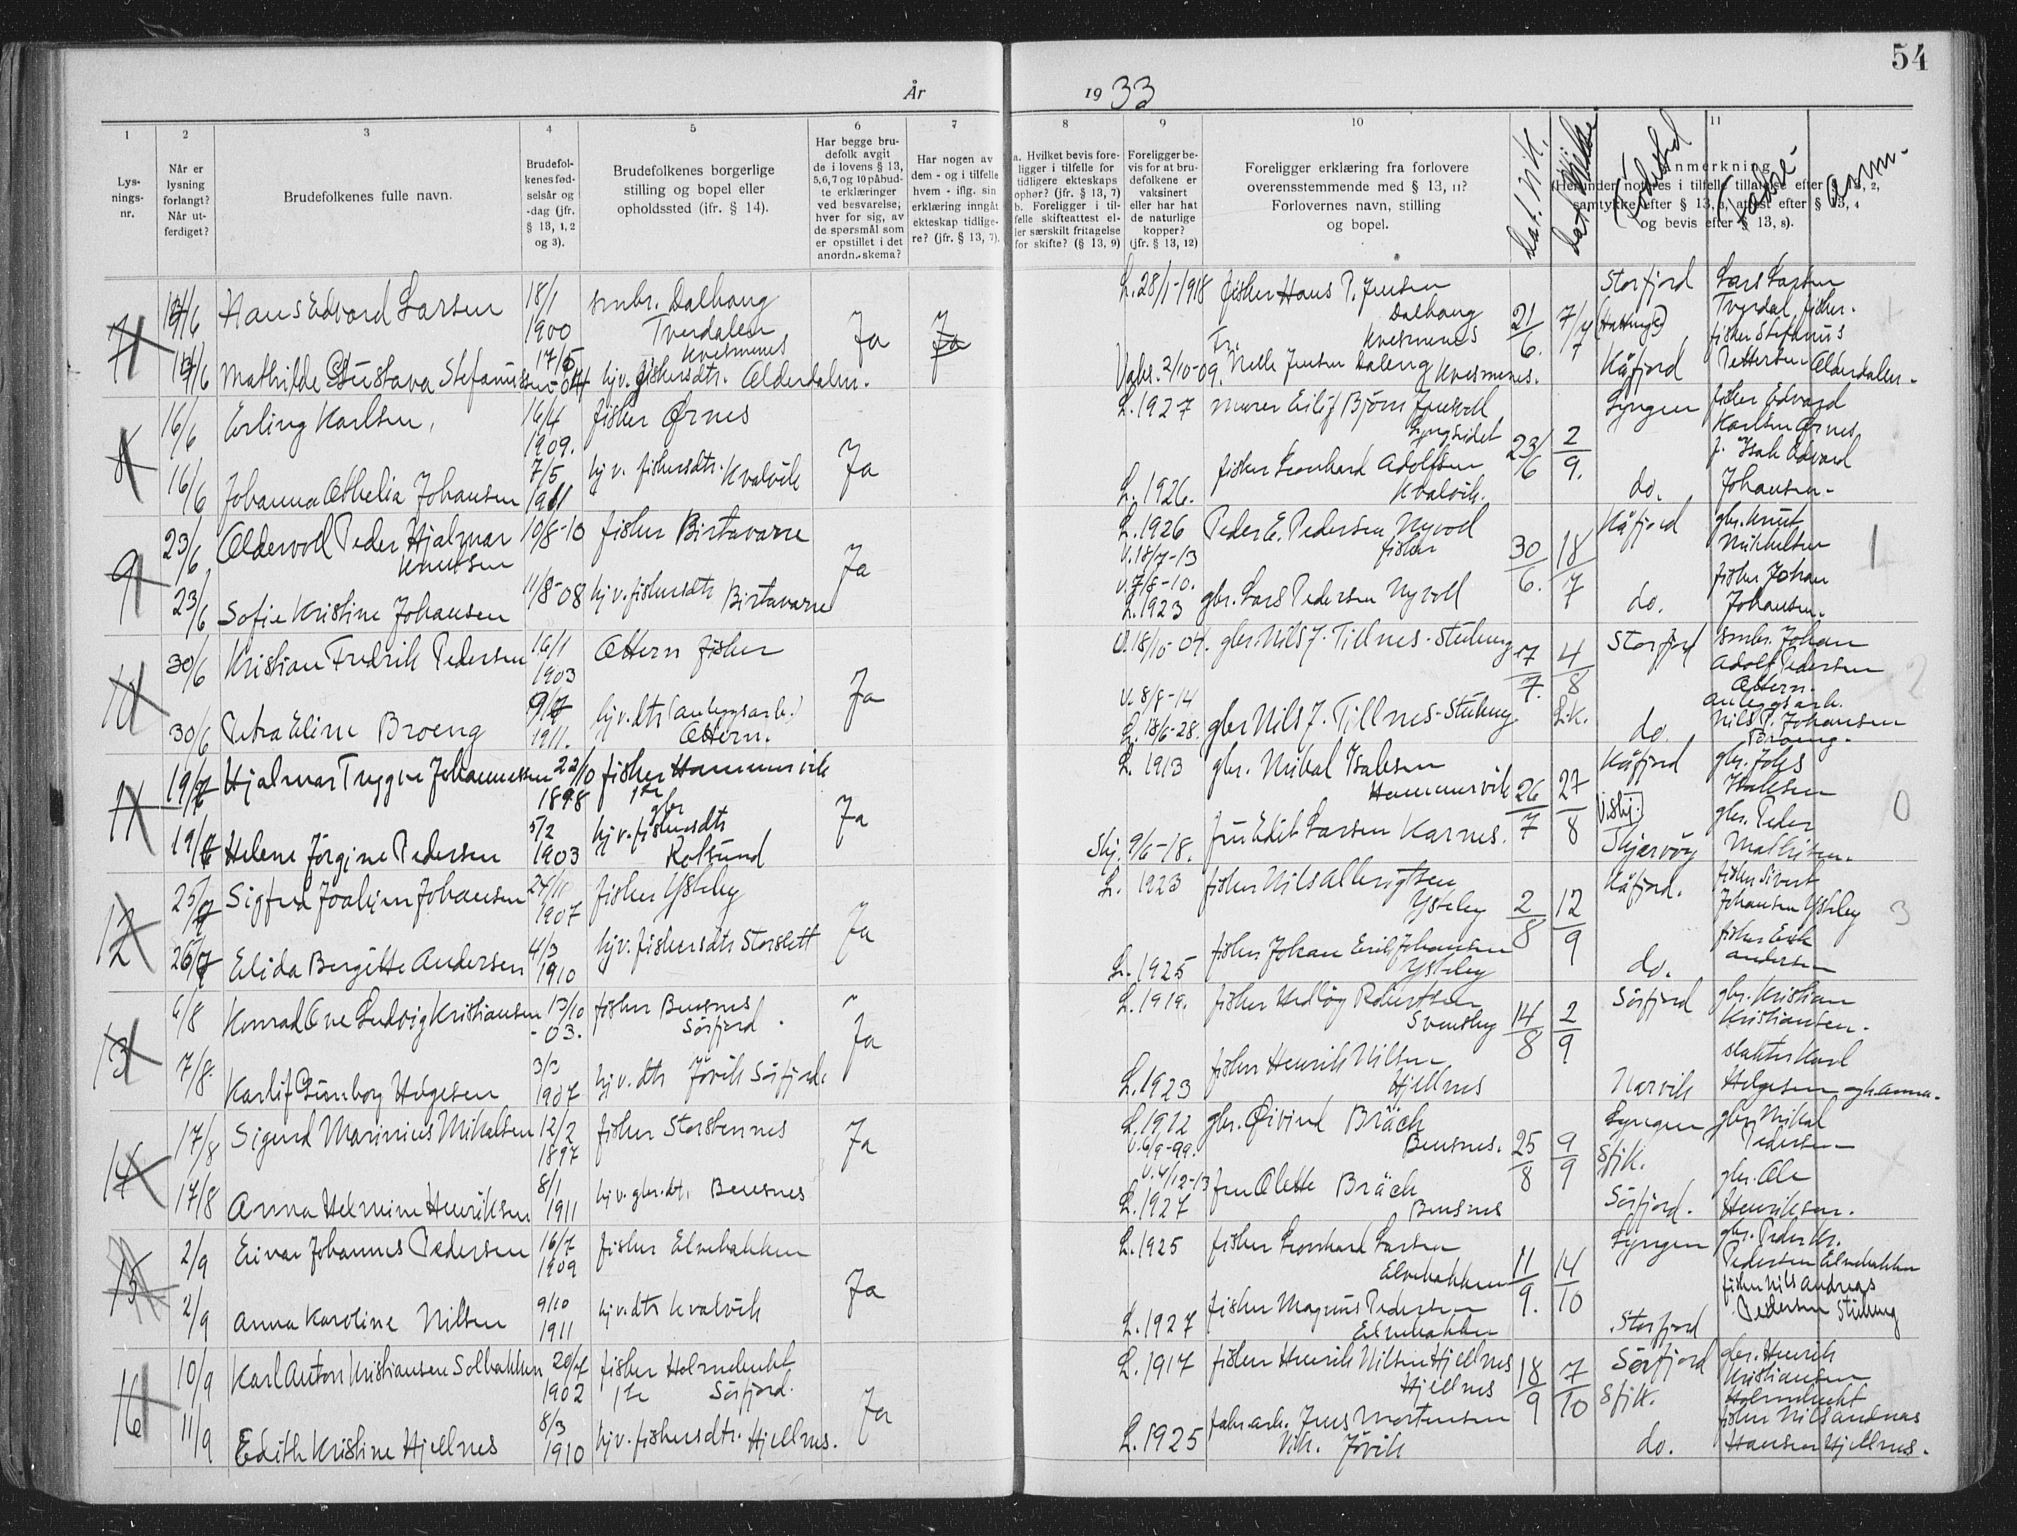 54
År
19 33
1
2
3
4
5
6
7
8
9
10
11
Lysningsnr.
Når er lysning forlangt? Når utferdiget?
Brudefolkenes fulle navn.
Brudefolkenes fødselsår og -dag (jfr. § 13, 1, 2 og 3).
Brudefolkenes borgerlige stilling og bopel eller opholdssted (jfr. § 14).
Har begge brudefolk avgit de i lovens § 13, 5, 6, 7 og 10 påbudte erklæringer ved besvarelse, hver for sig, av de spørsmål som er opstillet i det anordn. skema?
Har nogen av dem - og i tilfelle hvem - iflg. sin erklæring inngåt ekteskap tidligere? (jfr. § 13, 7).
a. Hvilket bevis foreligger i tilfelle for tidligere ekteskaps ophør? (jfr. § 13, 7) b. Foreligger i tilfelle skifteattest eller særskilt fritagelse for skifte? (§ 13, 9)
Foreligger bevis for at brudefolkene er vaksinert eller har hat de naturlige kopper? (jfr. § 13, 12)
Foreligger erklæring fra forlovere overensstemmende med § 13, 11? Forlovernes navn, stilling og bopel.
Anmerkning
7 Hans Edvard Larsen 18/1 1900 smbr. Dalhaug Tverdalen Kvesmenes Ja
L. 28/1-1918 fisker Hans P. Jensen Dalhaug Kvesmenes 21/6. Storfjord Lars Larsen Tverdal, fisker.
Mathilde Gustava Stefanussen 17/5-04 hjv. fiskersdtr. Olderdalen.
2/10-09. Kvesmenes. Kåfjord fisker Stefanus Pettersen Olderdalen.
8 16/6 Erling Karlsen 16/4 1909. fisker Ørnes Ja
L. 1927 Lyngseidet 23/6 2/9. Lyngen fisker Edvard Karlsen Ørnes
16/6 Johanna Othelia Johansen 7/5 1911 hjv. fiskersdtr. Kvalvik
L. 1926. fisker Leonhard Adolfsen Kvalvik. do. f. Isak Edvard Johansen.
9 23/6 Oldervoll Peder Hjalmar Knutsen 10/8-10 fisker Birtavarre Ja
L. 1926 V. 18/7-13 Peder E. Pedersen Nyvoll fisker 30/6. 18/7 Kåfjord gbr. Knut Mikkelsen 1
23/6 Sofie Kristine Johansen 11/8-08 hjv. fiskersdtr Birtavarre
V. 7/8-10. L. 1923 gbr. Lars Pedersen Nyvoll do. fisker Johan Johansen.
10 30/6 Kristian Fredrik Pedersen 16/1 1903 Ottern fisker Ja
gbr. Nils J. Tillnes - 17/7. 4/8 Storfjord smbr. Johan Adolf Pedersen Ottern. 2
30/6 Petra Eline Broeng 1911. hjv. dtr (anleggsarb.) Ottern.
V. 8/8-14 L. 18/6-28. gbr Nils J. Tillnes - do. anleggsarb. Nils P. Johansen Broeng.
11 19/7 Hjalmar Tryggve Johannessen 22/10 1898 fisker Hammervik Ja
L. 1913 gbr. Mikal Isaksen Hammervik 26/7 27/8 Kåfjord gbr. Johs Isaksen 0
19/7 Helene Jørgine Pedersen 5/2 1903 hjv. fiskersdtr Rotsund
Skj. 9/6-18. fru Edit Larsen Karnes. Skjervøy gbr. Peder Mathisen.
12 25/7 Sigfred Joakim Johansen 24/11 1907 fisker Ysteby Ja
L. 1923 fisker Nils Albrigtsen Ysteby 2/8 12/9 Kåfjord. fisker Sivert Johansen Ysteby 3
26/7 Elida Bergitte Andersen 4/3 1910 hjv. fiskersdtr Storslett
L. 1925 fisker Johan Erik Johansen Ysteby do. fisker Erik Andersen
13 6/8 Konrad Ove Ludvig Kristiansen 13/10 -03. fisker Bensnes Sørfjord Ja
L. 1919. fisker Hedløy Robertsen Svensby 14/8 2/9 Sørfjord gbr. Kristian Kristiansen.
7/8. Karlif Gunborg Helgesen 3/3 1907 hjv. dtr Jøvik Sørfjord.
L. 1923 fisker Henrik Nilsen Hjellnes Narvik slakter Karl Helgesen
14 17/8 Sigurd Marinius Mikalsen 12/2 1897 fisker Storstennes Ja
L. 1912 V. 6/9-99. gbr. Øivind Bräck Bensnes. 25/8 9/9 Lyngen Sfjk. gbr Mikal Pedersen
17/8 Anna Helmine Henriksen 8/1 1911 hjv. gbr. dt. Bensnes
V. 4/12-13 L. 1927 fru Olette Bräck Bensnes Sørfjord. gbr. Ole Henriksen.
15 2/9 Einar Johannes Pedersen 16/7 1909 fisker Elvebakken Ja
L. 1925 fisker Leonhard Larsen Elvebakken 11/9. 14/10 Lyngen gbr. Peder Kr. Pedersen Elvebakken
2/9 Anna Karoline Nilsen 9/10 1911 hjv. dtr Kvalvik
L. 1927 fisker Magnus Pedersen Elvebakken Storfjord fisker Nils Andreas Pedersen
16 10/9 Karl Anton Kristiansen Solbakken 20/7 1902 fisker Holmebukt Sørfjord. Ja
L. 1917 fisker Henrik Nilsen Hjellnes Hjellnes 18/9 7/10 Sørfjord Sfjk. gbr. Henrik Kristiansen Holmebukt
11/9 Edith Kristine Hjellnes 8/3 1910 hjv. fiskersdtr. Hjellnes.
L. 1925 Jens Mortensen Vik. Jøvik do. fisker Nils Andreas Hansen Hjellnes.